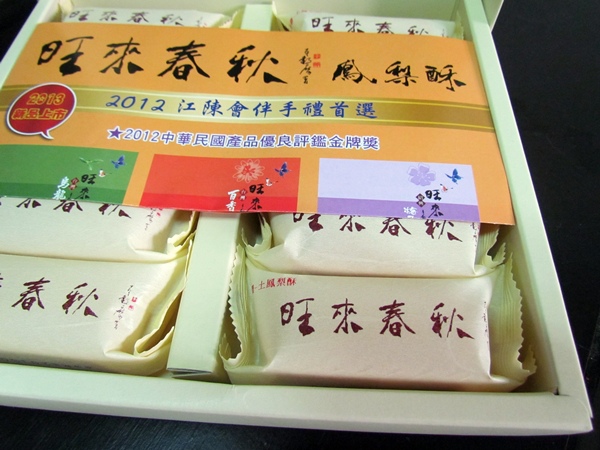 旺來春秋
旺來春秋
旺來春秋 鳳梨酥
2013
2012 江陳會伴手禮首選
★2012中華民國產品優良評鑑金牌獎
旺來
旺來
百香
旺來
旺來春秋
旺來春秋
土鳳梨酥
旺來春秋
旺來春秋